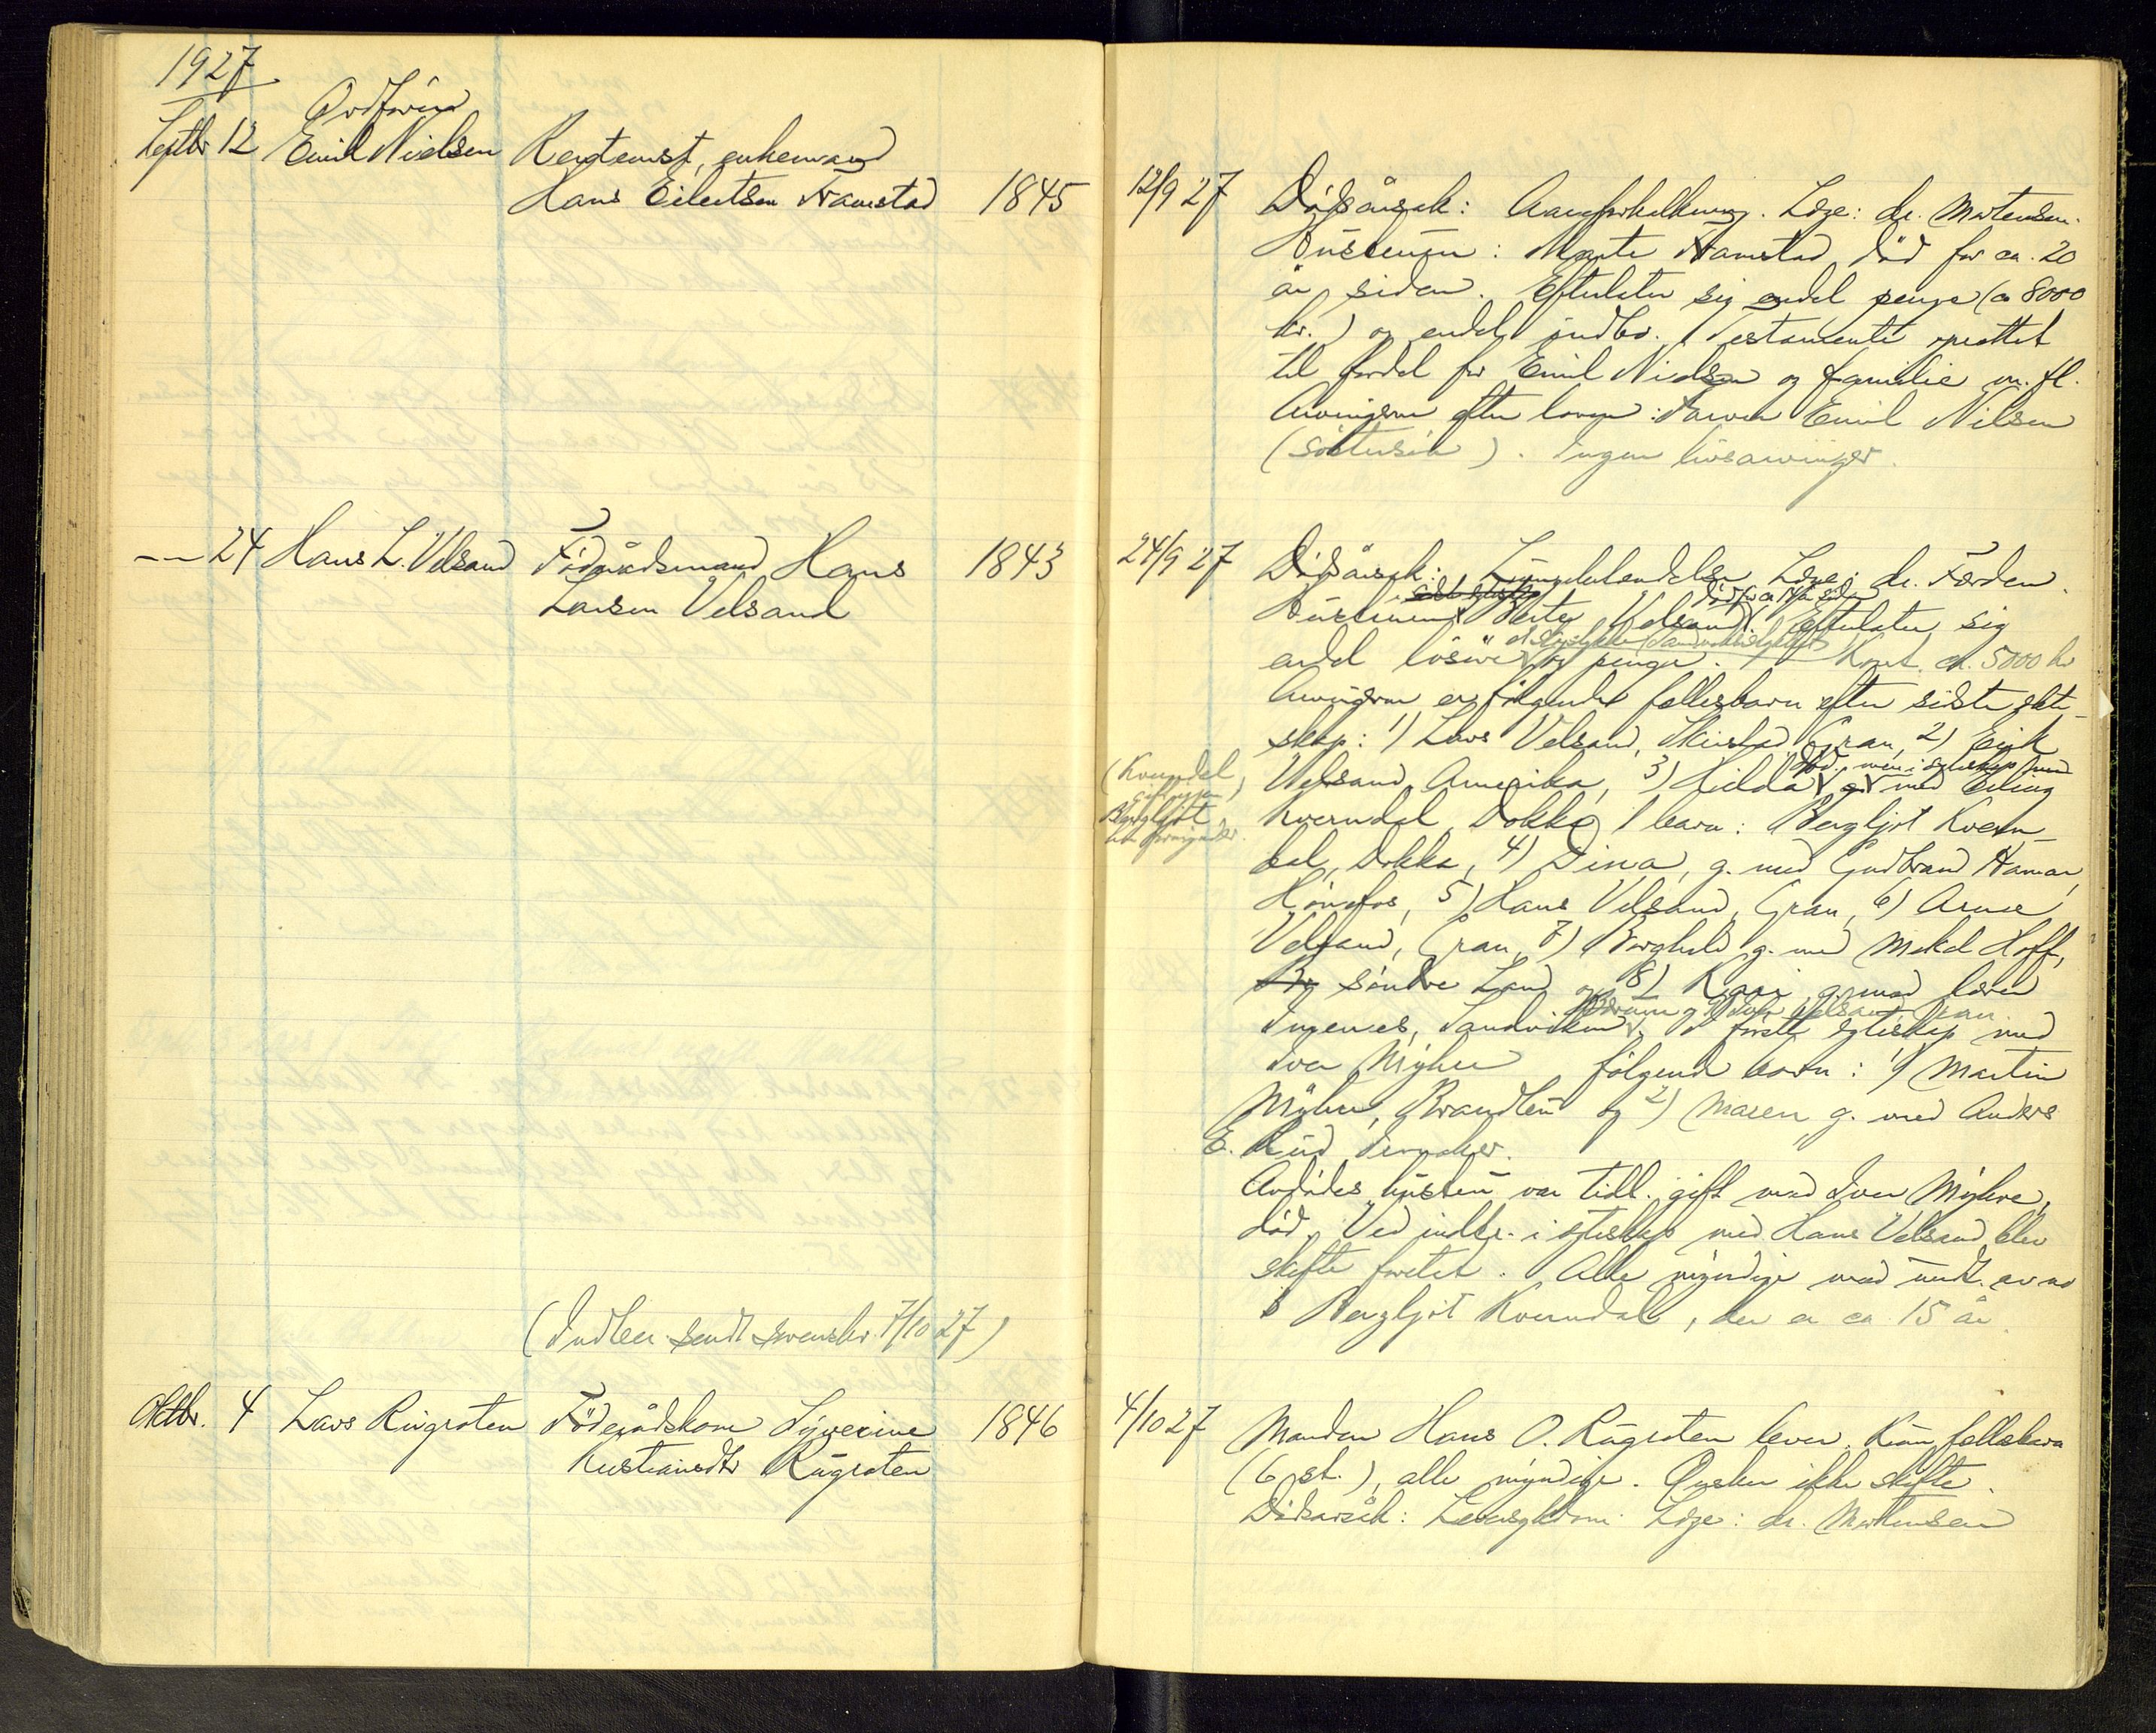 1927
Ordfører
Septbr 12 Emil Nielsen Rentenist, enkemand
Hans Eilertsen Framstad 1845
12/9 27 Dødsårsak: Aareforkalkning. Læge: dr. Mortensen.
Hustruen: Marte Framstad død for ca. 20
år siden. Efterlater sig endel penge (ca 8000
kr.) og endel indbo. Testamente oprettet
til fordel for Emil Nielsen og familie m. fl.
Arvingene efter loven: Emil Nilsen
(søstersøn). Ingen livsarvinger.
-- 24 Hans L. Velsand Føderådsmand Hans
Larsen Velsand 1843
24/9 27 Dødsårsak: Lungebetendelse Læge: dr. Færden.
død for ca siden
Hustruen Berte Velsand. Efterlater sig
endel løsøre og penge. Kont. ca. 5000 kr
Arvingene er følgende fellesbarn efter siste ekte-
skap: 1) Lars Velsand, Gran, 2) Eirik
død, men i egteskap med
Velsand Amerika, 3) Hilda g. med Erling
Kverndal, Dokka 1 barn: Bergljot Kvern-
dal, Dokka, 4) Dina, g. med Gudbrand Hamar,
Hønefos, 5) Hans Velsand, Gran, 6) Arne
Velsand, Gran, 7) Borghild g. med Mikal Hoff,
søndre Land og 8) Kari g. med lærer
Ingenes, Sandviken. I første egteskap med
Iver Myhre følgende barn: 1) Martin
Myhre, Brandbu og 2) Maren g. med Anders
E. Rud Jevnaker.
Avdødes hustru var tidl. gift med Iver Myhre,
død. Ved indtr. i egteskap med Hans Velsand blev
skifte foretat. Alle myndige med undt. av
Bergljot Kverndal, der er ca 15 år.
(Kverndal,
Bergljot
(Indber. sendt 7/10 27)
Oktbr. 4 Lars Rugroten Føderådskone Syverine
Kristiansdtr Rugroten 1846
4/10 27 Manden Hans O. Rugroten lever. Kun fellesbarn
(6 st.), alle myndige. Ønsker ikke skifte.
Dødsårsak: Læge: dr. Mortensen